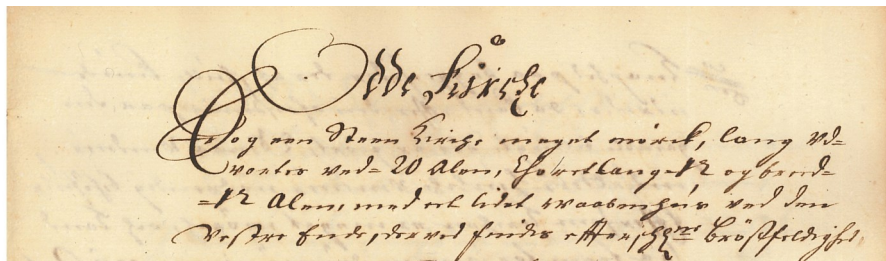 Odde Kirche
Er og een Steen Kirche meget mörck, lang vd=
vortes ved= 20 Alen, Choret lang= 12 og breed=
=12 Alen, med et lidet Waabenhuus ved den
Vestre Ende, der ved findes effterschr. Bröstfeldighed,